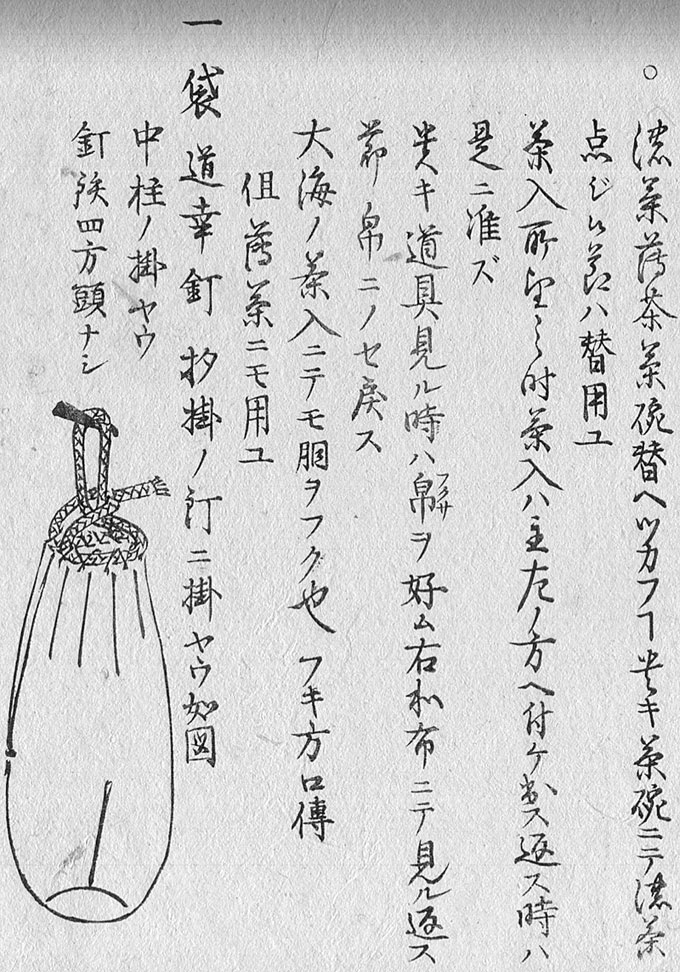 ○
濃茶薄茶茶碗替ヘツカフヿ貴キ茶碗ニテ濃茶
点ジ候節ハ替用ユ
茶入所望之時茶入ハ主左ノ方ヘ付ケ出ス返ス時ハ
是ニ准ズ
貴キ道具見ル時ハ帛フクサヲ好ム右私布ニテ見ル返ス
節帛ニノセ戻ス
大海ノ茶入ニテモ胴ヲフク也フキ方口傳
但薄茶ニモ用ユ
一袋道幸釘 掛ノ釘ニ掛ヤウ如図
中柱ノ掛ヤウ
釘 四方頭ナシ